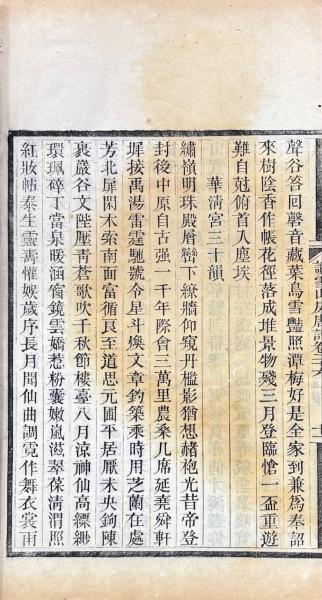 聲谷答回聲音藏葉鳥雪豔照潭梅好是全家到兼為奉詔
來樹陰香作帳花徑落成堆景物殘三月登臨愴一盃重遊
難自尅俯首入塵埃
華清宮三十韻
繡嶺明珠殿層巒下繚牆仰窺丹檻影猶想赭袍光昔帝登
封後中原自古强一千年際會三萬里農桑几席延堯舜軒
墀接禹湯雷霆馳號令星斗煥文章釣築乘時用芝蘭在處
芳北扉閑木索南面富循良至道思元圃平居厭未央鉤陳
裹巖谷文陛壓青蒼歌吹千秋節樓臺八月涼神仙高縹緲
環珮碎丁當泉暖涵窗鏡雲嬌惹粉囊嫩嵐滋翠葆清渭照
紅妝帖泰生靈壽懽娛歲序長月聞仙曲調霓作舞衣裳雨